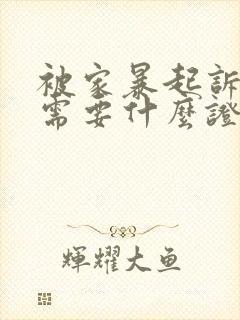 被家暴起訴
需要什麼證
輝耀大鱼